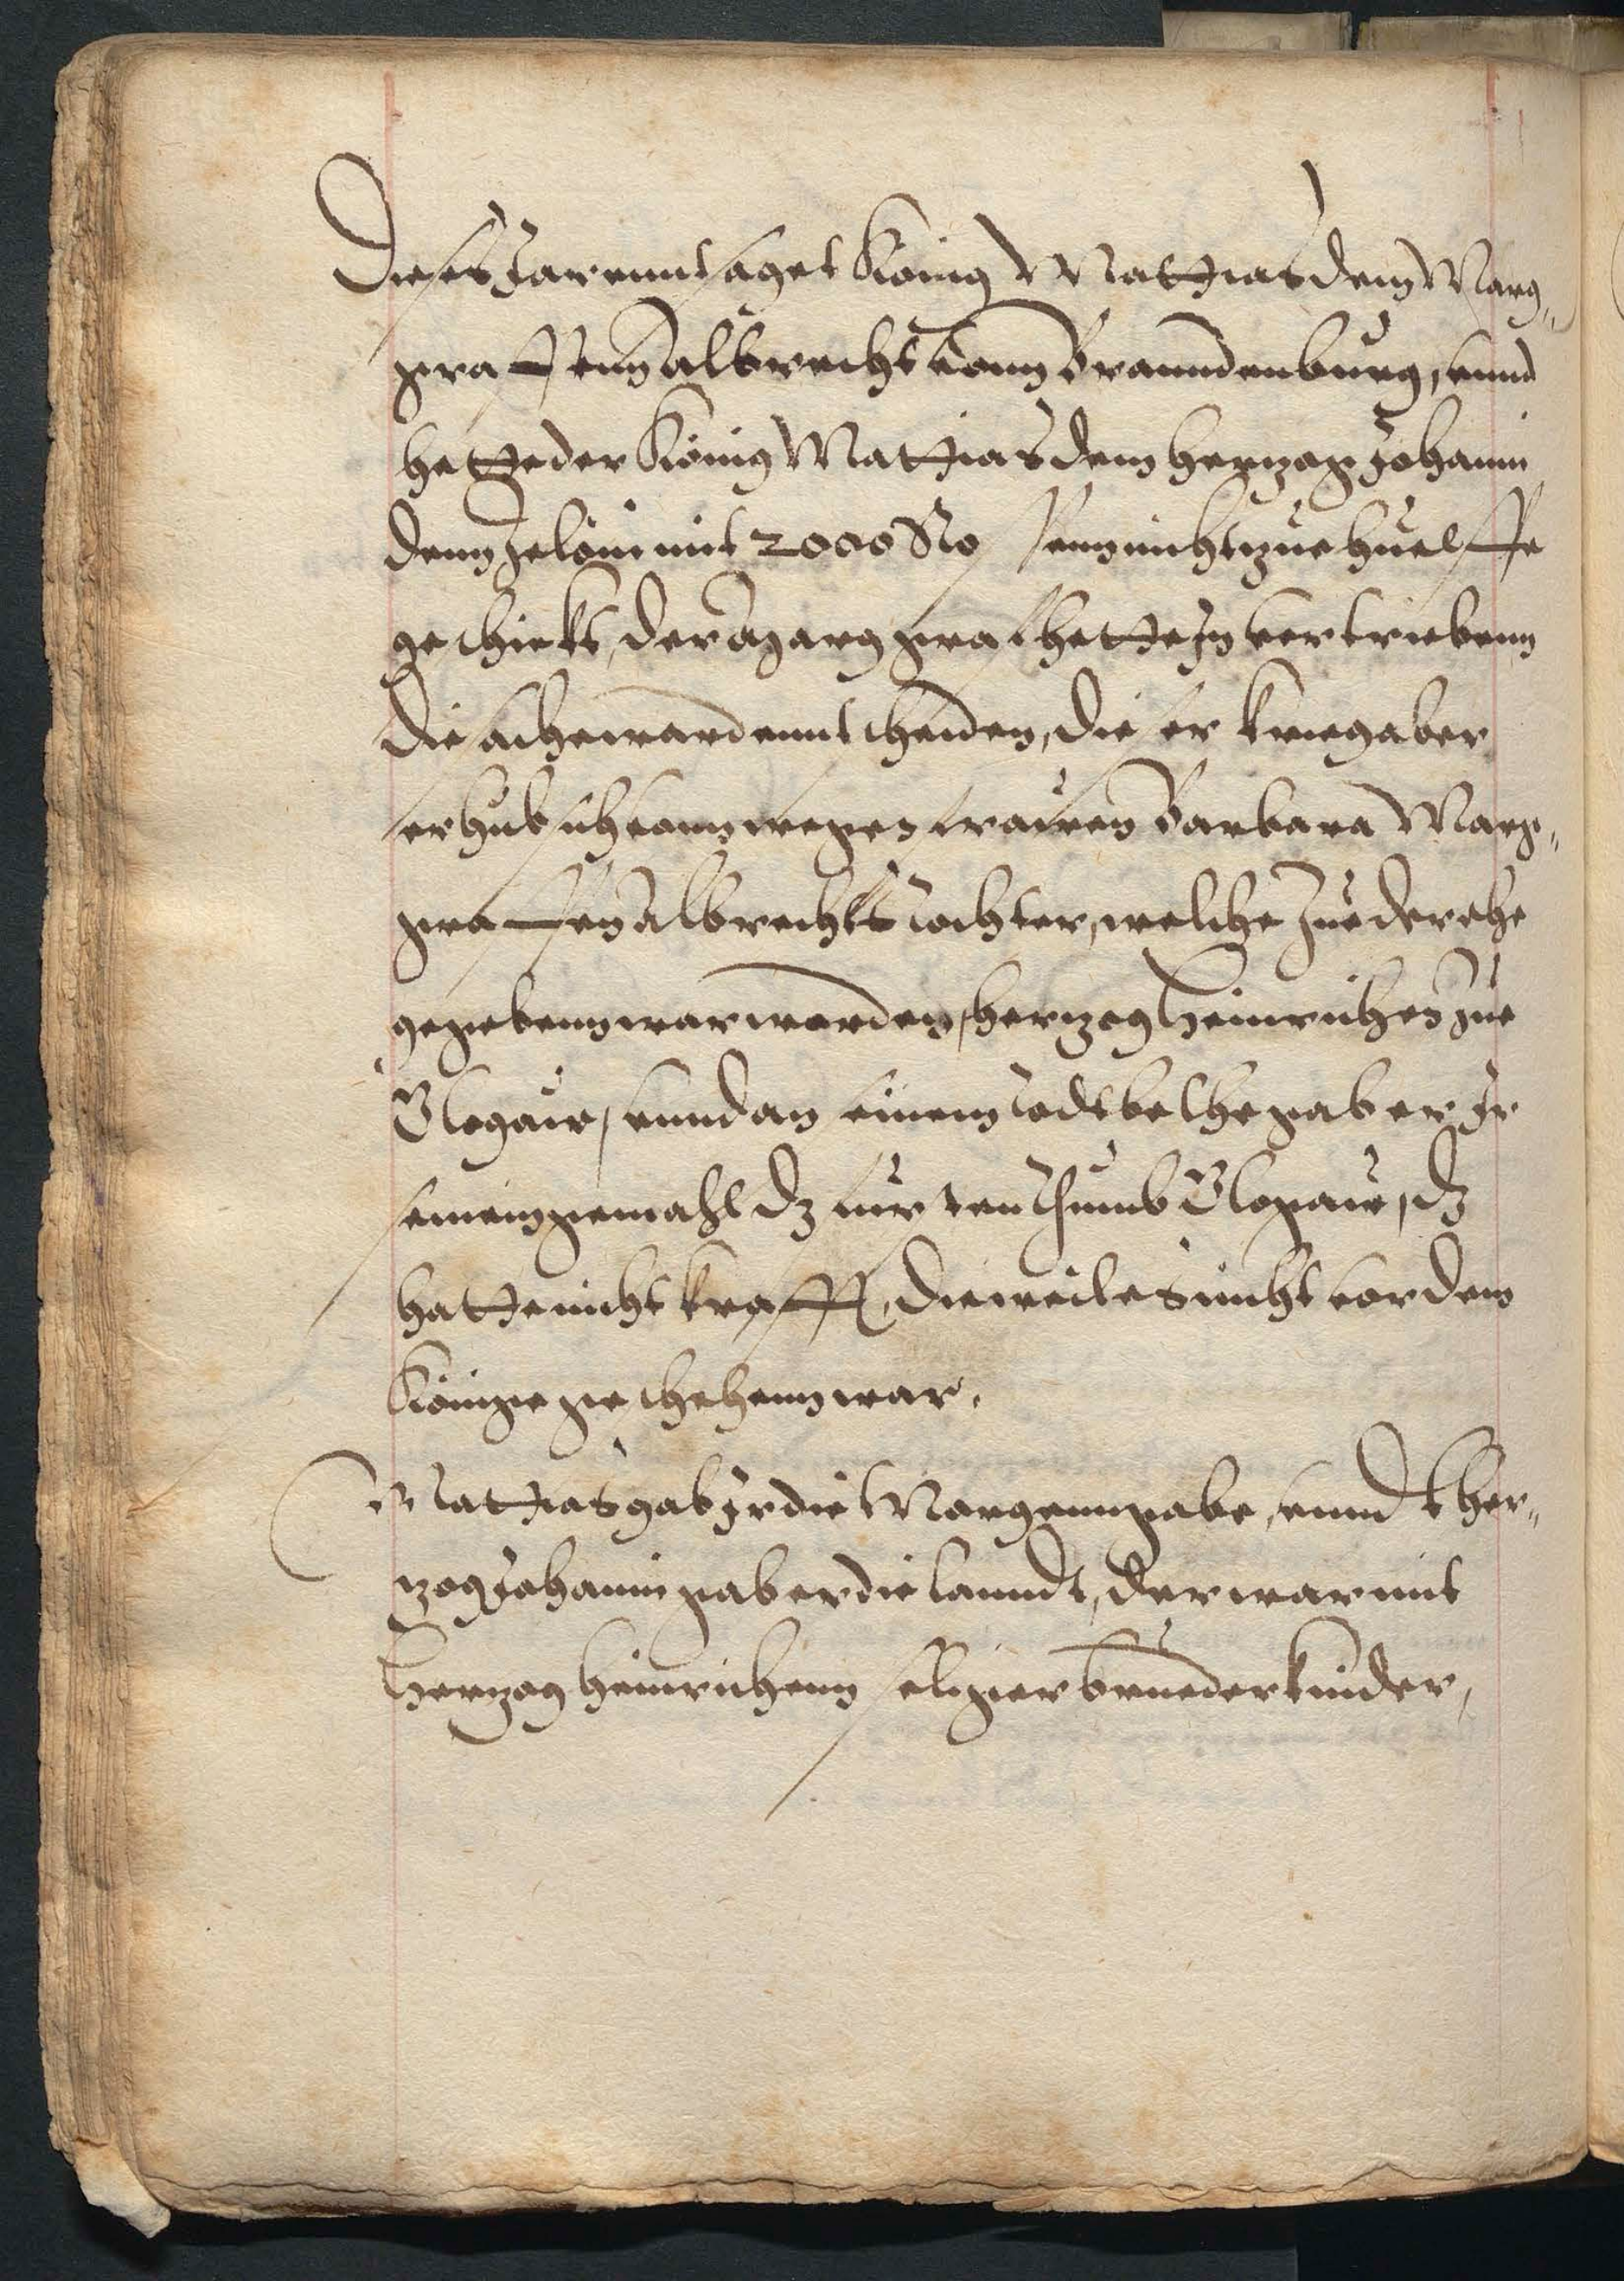 Dieses Jar enntsaget König Mattias dem Marg-
graffenn Albrecht vonn Branndenburg, vnnd
hette der König Mattias dem hertzog Johann
denn Jelōni mit 2000 Rossenn nicht zue huelffe
geschickt, der Margraf hette Jn vertriebenn
die sache ward enntscheiden, dieser krieg aber
erhub sich vonn wegen frawen Barbara Marg-
graffen Albrechts Tochter, welche zue der ehe
gegebenn war worden, hertzog Heinrichen zue
Glogaw, vnnd an seinem Todtbethe gab er Jr
seinem gemahl dz furstenthumb Glogaw, dz
hatte nicht krafft, dieweil es nicht vor dem
Könige geschehenn war.
Mattias gab Jr die Morgenngabe, vnnd her-
tzog Johann gab er die lanndt, der war mit
Hertzog Heinrichenn seliger bruederkinder,